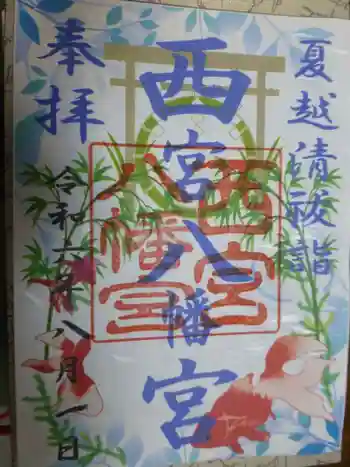 夏越清祓詣
西宮八幡宮
奉拝
令和六年八月一日
西宮
八幡宮